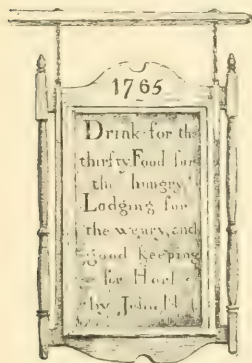 1765
Drink for the
thirsty Food for
the hungry
Lodging for
the weary, and
good keeping
for
by